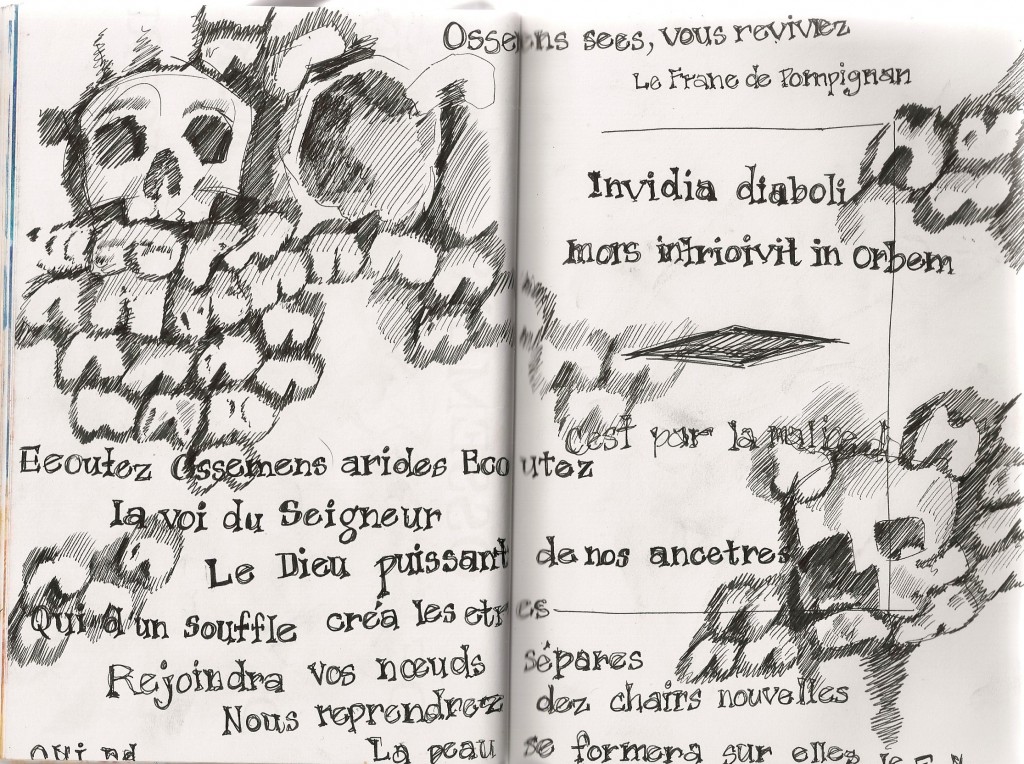 Ossemens secs, vous revivrez
Le Franc de Pompignan
Invidia diaboli
mors intrioivit in orbem
C'est par la malice d
Ecoutez Ossemens arides Ecoutez
la voi du Seigneur
Le Dieu puissant de nos ancetres
Qui d'un souffle créa les etres
Rejoindra vos nœuds sépares
Nous reprendrez dez chairs nouvelles
La peau se formera sur elles